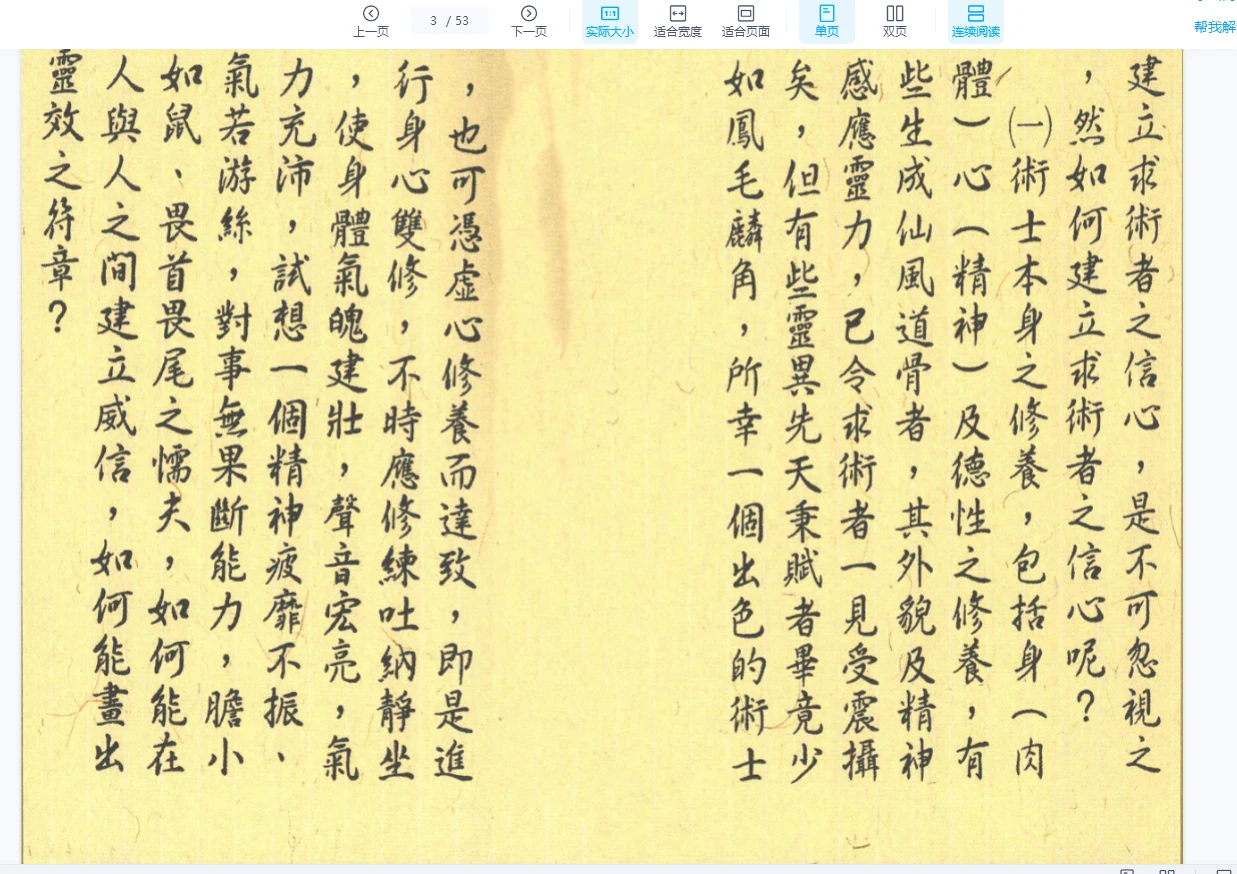 上一页
3 / 53
下一页
1:1
实际大小
适合宽度
适合页面
单页
双页
连续阅读
帮我解
建立求術者之信心，是不可忽視之
，然如何建立求術者之信心呢？
㈠術士本身之修養，包括身（肉
體）心（精神）及德性之修養，有
些生成仙風道骨者，其外貌及精神
感應靈力，已令求術者一見受震攝
矣，但有些靈異先天秉賦者畢竟少
如鳳毛麟角，所幸一個出色的術士
，也可憑虛心修養而達致，即是進
行身心雙修，不時應修練吐納靜坐
，使身體氣魄建壯，聲音宏亮，氣
力充沛，試想一個精神疲靡不振、
氣若游絲，對事無果斷能力，膽小
如鼠、畏首畏尾之懦夫，如何能在
人與人之間建立威信，如何能畫出
靈效之符章？